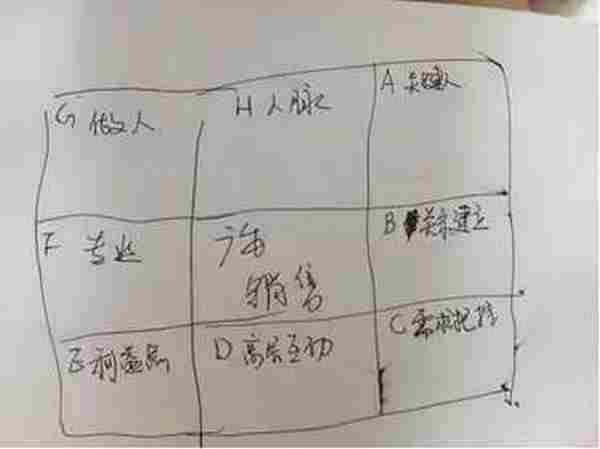 G 做人
H 人脉
A 关键人
F 专业
销售
B 关系建立
E 利益点
D 高层互动
C 需求把控